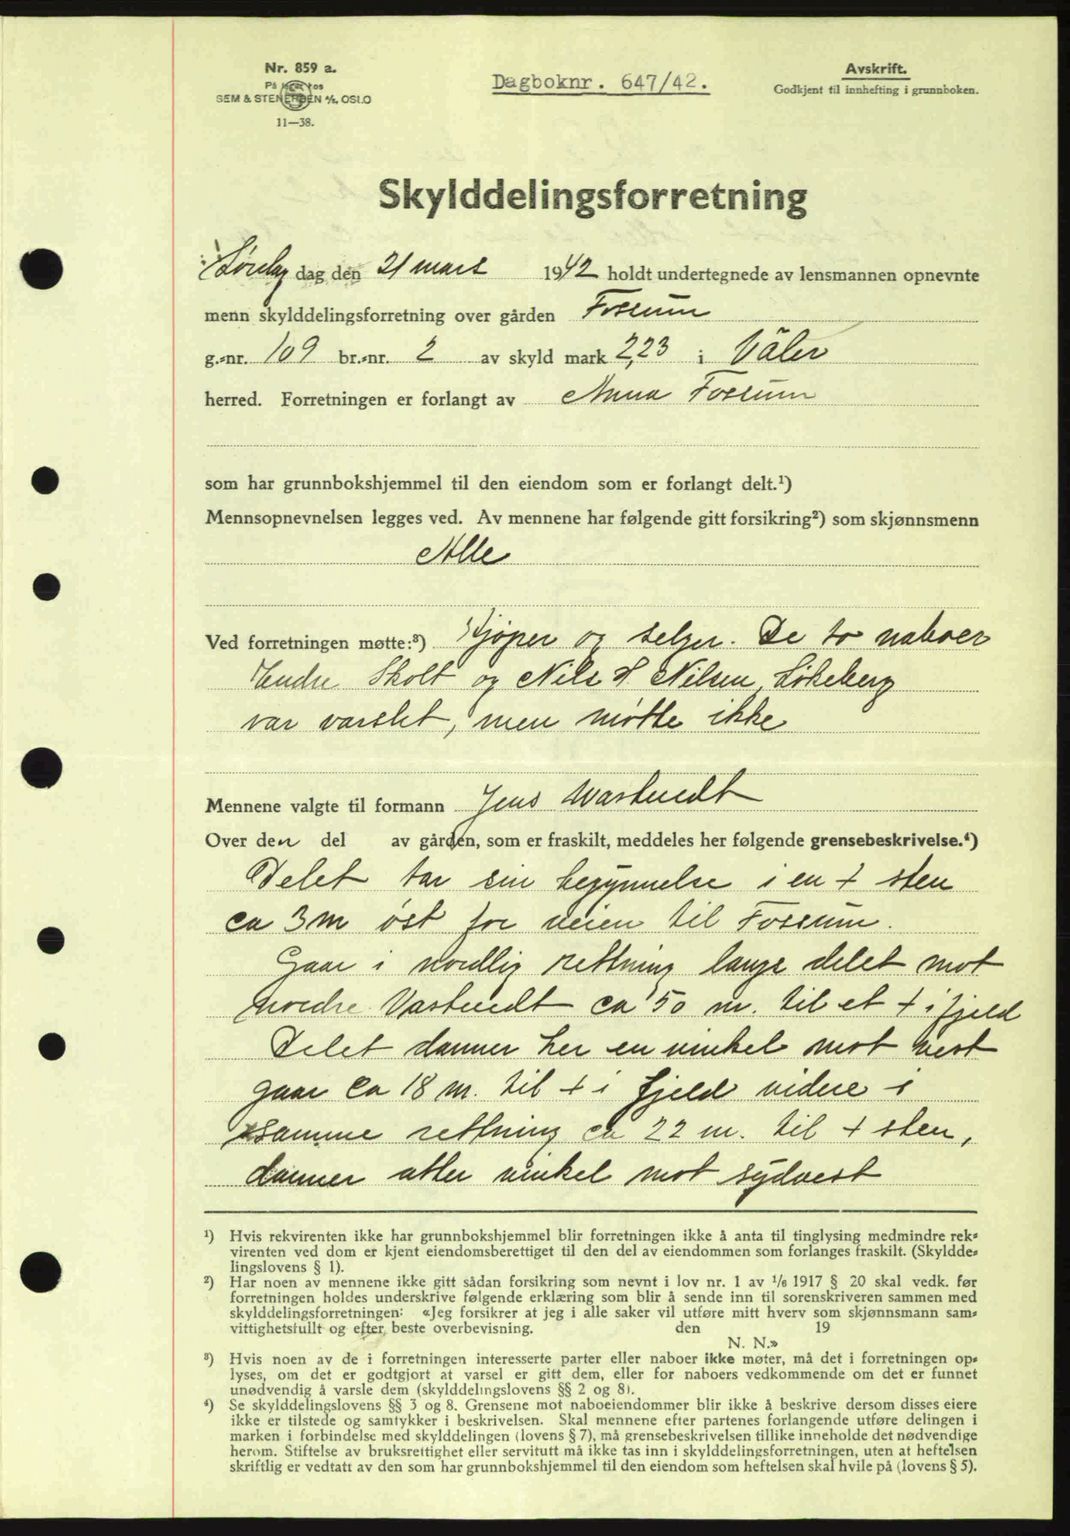 Nr. 859 a.
På lager hos
SEM & STENERSEN A/S, OSLO
11—38.
Dagboknr. 647/42.
Avskrift.
Godkjent til innhefting i grunnboken.
Skylddelingsforretning
Lørdag dag den 21 mars 1942 holdt undertegnede av lensmannen opnevnte
menn skylddelingsforretning over gården Fossum
g.-nr. 109 br.-nr. 2 av skyld mark 2,23 i Våler
herred. Forretningen er forlangt av Anna Fossum
som har grunnbokshjemmel til den eiendom som er forlangt delt.¹)
Mennsopnevnelsen legges ved. Av mennene har følgende gitt forsikring²) som skjønnsmenn
Alle
Ved forretningen møtte:³) Kjøper og selger. De to naboer
Endre Skolt og Nils H Nilsen, Løkeberg
var varslet, men møtte ikke
Mennene valgte til formann Jens Wastvedt
Over den del av gården, som er fraskilt, meddeles her følgende grensebeskrivelse.⁴)
Delet tar sin begynnelse i en + sten
ca 3 m øst for veien til Fossum.
Gaar i nordlig rettning langs delet mot
nordre Vastvedt ca 50 m. til et + i fjeld
Delet danner her en vinkel mot vest
gaar ca 18 m. til + i fjeld videre i
samme rettning ca 22 m. til + sten,
danner atter vinkel mot sydvest
¹) Hvis rekvirenten ikke har grunnbokshjemmel blir forretningen ikke å anta til tinglysing medmindre rek-
virenten ved dom er kjent eiendomsberettiget til den del av eiendommen som forlanges fraskilt. (Skyldde-
lingslovens § 1).
²) Har noen av mennene ikke gitt sådan forsikring som nevnt i lov nr. 1 av 1/6 1917 § 20 skal vedk. før
forretningen holdes underskrive følgende erklæring som blir å sende inn til sorenskriveren sammen med
skylddelingsforretningen: «Jeg forsikrer at jeg i alle saker vil utføre mitt hverv som skjønnsmann sam-
vittighetsfullt og efter beste overbevisning. den 19
N. N.»
³) Hvis noen av de i forretningen interesserte parter eller naboer ikke møter, må det i forretningen op-
lyses, om det er godtgjort at varsel er gitt dem, eller for naboers vedkommende om det er funnet
unødvendig å varsle dem (skylddelingslovens §§ 2 og 8).
⁴) Se skylddelingslovens §§ 3 og 8. Grensene mot naboeiendommer blir ikke å beskrive dersom disses eiere
ikke er tilstede og samtykker i beskrivelsen. Skal mennene efter partenes forlangende utføre delingen i
marken i forbindelse med skylddelingen (lovens § 7), må grensebeskrivelsen tillike inneholde det nødvendige
herom. Stiftelse av bruksrettighet eller servitutt må ikke tas inn i skylddelingsforretningen, uten at heftelsen
skriftlig er vedtatt av den som har grunnbokshjemmel til den eiendom som heftelsen skal hvile på (lovens § 5).